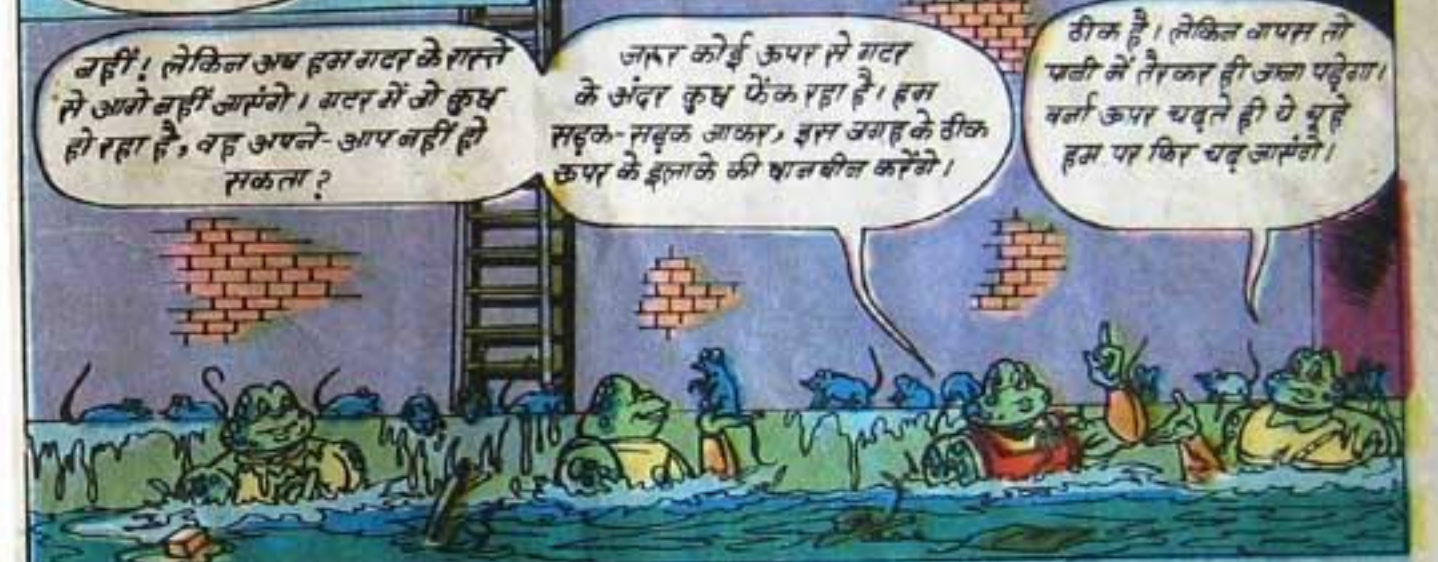 नहीं! लेकिन अब हम गटर के रास्ते
से आगे नहीं जाएंगे। गटर में जो कुछ
हो रहा है, वह अपने-आप नहीं हो
सकता?
जरूर कोई ऊपर से गटर
के अंदर कुछ फेंक रहा है। हम
सड़क-सड़क जाकर, इस जगह के ठीक
ऊपर के इलाके की छानबीन करेंगे।
ठीक है। लेकिन वापस तो
पानी में तैरकर ही जाना पड़ेगा।
वर्ना ऊपर चढ़ते ही ये चूहे
हम पर फिर चढ़ जाएंगे।